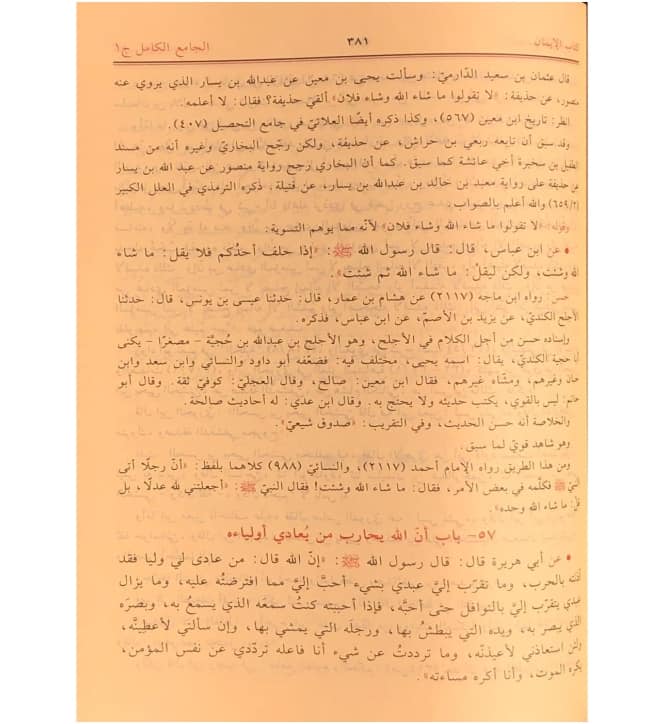 كتاب الإيمان ٣٨١ الجامع الكامل ج١
قال عثمان بن سعيد الدّارميّ: وسألت يحيى بن معين عن عبدالله بن يسار الذي يروي عنه
منصور، عن حذيفة: «لا تقولوا ما شاء الله وشاء فلان» ألقيَ حذيفة؟ فقال: لا أعلمه.
انظر: تاريخ ابن معين (٥٦٧)، وكذا ذكره أيضًا العلائيّ في جامع التحصيل (٤٠٧).
وقد سبق أن تابعه ربعي بن حراش، عن حذيفة، ولكن رجّح البخاريّ وغيره أنه من مسند
الطفيل بن سخبرة أخي عائشة كما سبق. كما أن البخاري رجح رواية منصور عن عبد الله بن يسار
عن حذيفة على رواية معبد بن خالد بن عبدالله بن يسار، عن قتيلة. ذكره الترمذي في العلل الكبير
(٦٥٩/٢) والله أعلم بالصواب.
وقوله: «لا تقولوا ما شاء الله وشاء فلان» لأنّه مما يوهم التسوية.
• عن ابن عباس، قال: قال رسول الله ﷺ: «إذا حلف أحدُكم فلا يقل: ما شاء
الله وشئت، ولكن ليقلْ: ما شاء الله ثم شئت».
حسن: رواه ابن ماجه (٢١١٧) عن هشام بن عمار، قال: حدثنا عيسى بن يونس، قال: حدثنا
الأجلح الكنديّ، عن يزيد بن الأصمّ، عن ابن عباس، فذكره.
وإسناده حسن من أجل الكلام في الأجلح، وهو الأجلح بن عبدالله بن حُجيَّة - مصغرًا - يكنى
أبا حجية الكنديّ، يقال: اسمه يحيى، مختلف فيه: فضعّفه أبو داود والنسائي وابن سعد وابن
حبان وغيرهم، ومشّاه غيرهم، فقال ابن معين: صالح، وقال العجليّ: كوفيّ ثقة. وقال أبو
حاتم: ليس بالقوي، يكتب حديثه ولا يحتج به. وقال ابن عدي: له أحاديث صالحة.
والخلاصة أنه حسن الحديث، وفي التقريب: «صدوق شيعيّ».
وهو شاهد قويّ لما سبق.
ومن هذا الطريق رواه الإمام أحمد (٢١١٧)، والنسائيّ (٩٨٨) كلاهما بلفظ: «أنّ رجلًا أتى
النبيّ ﷺ فكلّمه في بعض الأمر، فقال: ما شاء الله وشئت! فقال النبيّ ﷺ: «أجعلتني لله عدلًا، بل
قلْ: ما شاء الله وحده».
٥٧- باب أنّ الله يحارب من يُعادي أولياءه
• عن أبي هريرة قال: قال رسول الله ﷺ: «إنّ الله قال: من عادى لي وليا فقد
آذنته بالحرب، وما تقرّب إليَّ عبدي بشيء أحبَّ إليَّ مما افترضتُه عليه، وما يزال
عبدي يتقرب إليَّ بالنوافل حتى أحبَّه، فإذا أحببته كنتُ سمعَه الذي يسمعُ به، وبصرَه
الذي يبصر به، ويدَه التي يَبطشُ بها، ورجلَه التي يمشي بها، وإن سألني لأعطِينَّه،
ولئن استعاذني لأعيذنّه، وما ترددتُ عن شيء أنا فاعله تردّدي عن نفس المؤمن،
يكره الموت، وأنا أكره مساءته».